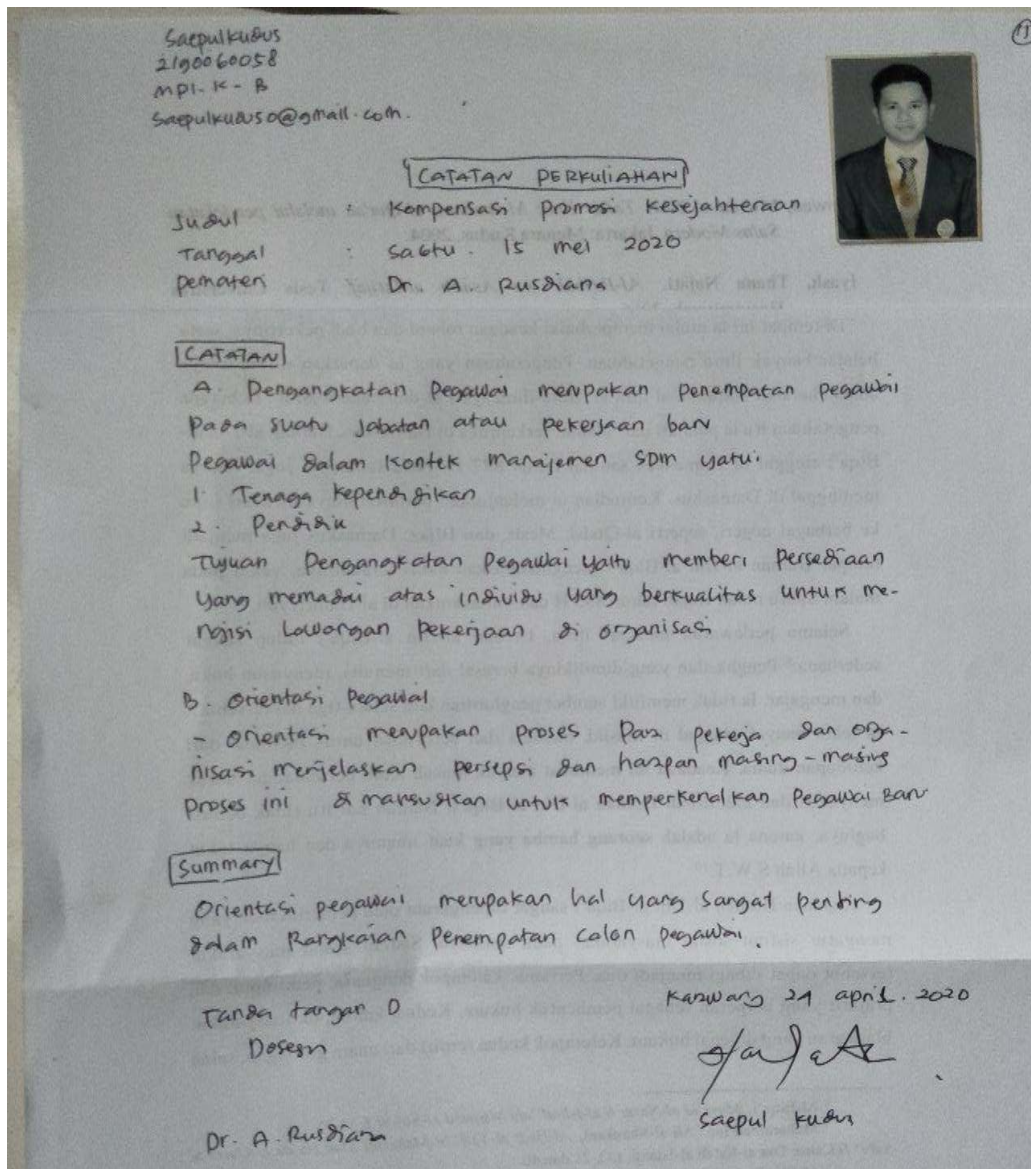 Saepulkudus
2190060058
MPI-K-B
Saepulkuduso@gmail.com.
11
CATATAN PERKULIAHAN
Judul : Kompensasi Promosi Kesejahteraan
Tanggal : Sabtu. 15 mei 2020
Pemateri Dr. A Rusdiana
CATATAN
A. Pengangkatan Pegawai merupakan penempatan pegawai
Pada suatu jabatan atau pekerjaan baru
Pegawai dalam Kontek manajemen SDM yatu:
1. Tenaga kependidikan
2. Pendidik
Tujuan Pengangkatan Pegawai yaitu memberi Persediaan
yang memadai atas individu yang berkualitas untuk me-
ngisi Lowongan Pekerjaan di organisasi
B. Orientasi Pegawai
- Orientasi merupakan proses Para pekerja dan orga-
nisasi menjelaskan persepsi dan harapan masing-masing
Proses ini untuk memperkenalkan Pegawai Baru
Summary
Orientasi pegawai merupakan hal yang Sangat Penting
dalam Rangkaian Penempatan Calon pegawai.
Karawang 24 april. 2020
Tanda tangan
Dosesn
Saepul Kudus
Dr. A. Rusdiana